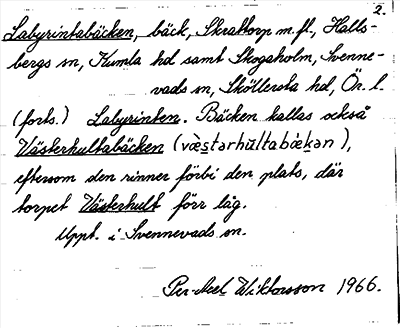 2.
Labyrintabäcken, bäck, Skrattorp m.fl., Halls-
bergs sn, Kumla hd samt Skogaholm, Svenne-
vads sn, Sköllersta hd, Ör. l.
(forts.) Labyrinten. Bäcken kallas också
Västerhultabäcken (væ̀stərhultabækən),
eftersom den rinner förbi den plats, där
torpet Västerhult förr låg.
Uppt. i Svennevads sn.
Per-Axel Wiktorsson 1966.